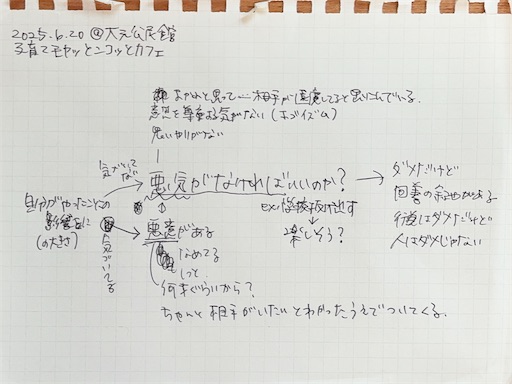 2025.6.20 @大元公民館
子育てモヤッとニコッとカフェ
よかれと思って 相手が 思いこんでいる.
意思を尊重する気がない (エゴイズム)
思いやりがない
気づいてない
悪気がなければいいのか?
ダメだけど
改善の余地がある
行為はダメだけど
人はダメじゃない
自分がやったことの
影響
(の大きさ)
気づいてる
ex. 学校抜け出す
楽しそう?
悪意がある
なめてる
しっと
何才ぐらいから?
ちゃんと相手がいたいとわかったうえでついてくる.